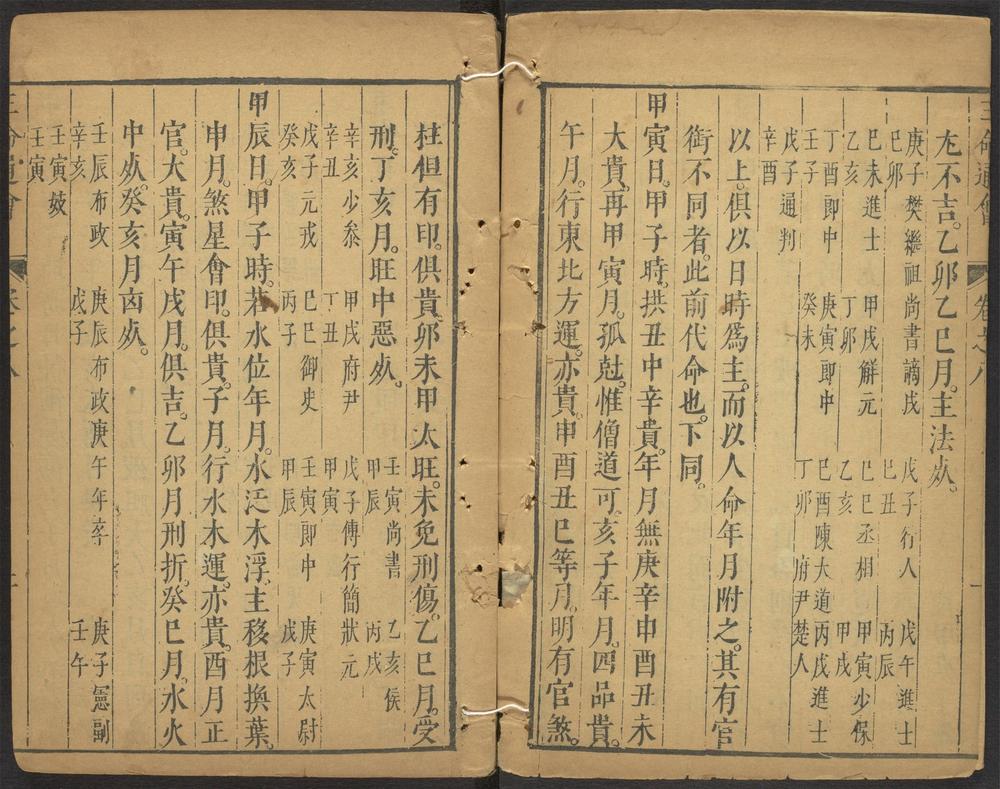 三命通會 卷之八
尢不吉。乙卯乙巳月。主法死。
庚子樊繼祖尚書謫戍 戊子行人 戊午進士
巳卯 巳丑 丙辰
巳未進士 甲戌解元 巳巳丞相 甲寅少保
乙亥 丁卯 乙亥 甲戌
丁酉即中 庚寅即中 巳酉陳大道丙戌進士
壬子 癸未 丁卯 府尹楚人
戊子通判
辛酉
以上。俱以日時爲主。而以人命年月附之。其有官
銜不同者。此前代命也。下同。
甲寅日。甲子時。拱丑中辛貴。年月無庚辛申酉丑未
大貴。再甲寅月。孤尅。惟僧道可。亥子年月。四品貴。
午月。行東北方運。亦貴。申酉丑巳等月。明有官煞。
柱但有印。俱貴。卯未甲太旺。未免刑傷。乙巳月。受
刑。丁亥月。旺中惡死。 壬寅尚書 乙亥侯
甲辰 丙戌
辛亥少叅 甲戌府尹 戊子傅行簡狀元
辛丑 丁丑 甲寅
戊子元戎 巳巳御史 壬寅即中 庚寅太尉
癸亥 丙子 甲辰 戊子
甲辰日。甲子時。若水位年月。水泛木浮。主移根換葉。
申月。煞星會印。俱貴。子月。行水木運。亦貴。酉月正
官。大貴。寅午戌月。俱吉。乙卯月刑折。癸巳月。水火
中死。癸亥月凶死。
壬辰布政 庚辰布政庚午年卒 庚子憲副
辛亥 戊子 壬午
壬寅妓
壬寅